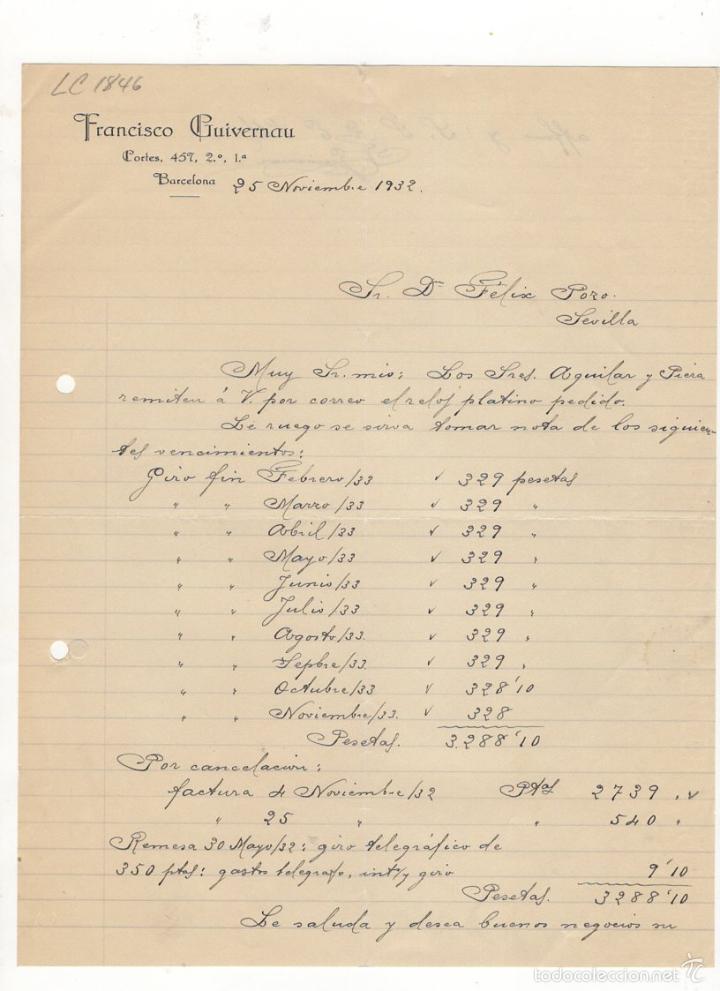 LC 1846
Francisco Guivernau
Cortes, 457, 2.º, 1.ª
Barcelona 25 Noviembre 1932.
Sr. Dn Félix Pozo.
Sevilla
Muy Sr. mio: Los Sres. Aguilar y Piera
remiten á V. por correo el reloj platino pedido.
Le ruego se sirva tomar nota de los siguien-
tes vencimientos:
Giro fin Febrero/33 v 329 pesetas
" " Marzo/33 v 329 "
" " Abril/33 v 329 "
" " Mayo/33 v 329 "
" " Junio/33 v 329 "
" " Julio/33 v 329 "
" " Agosto/33. v 329 "
" " Sepbre/33. v 329 "
" " Octubre/33 v 328'10
" " Noviembre/33. v 328
Pesetas. 3.288'10
Por cancelación:
factura 4 Noviembre/32 Ptas 2739 " v
" 25 " " 540 "
Remesa 30 Mayo/32: giro telegráfico de
350 ptas: gastos telegrafo, int y giro 9'10
Pesetas. 3288'10
Le saluda y desea buenos negocios su
todocoleccion.net